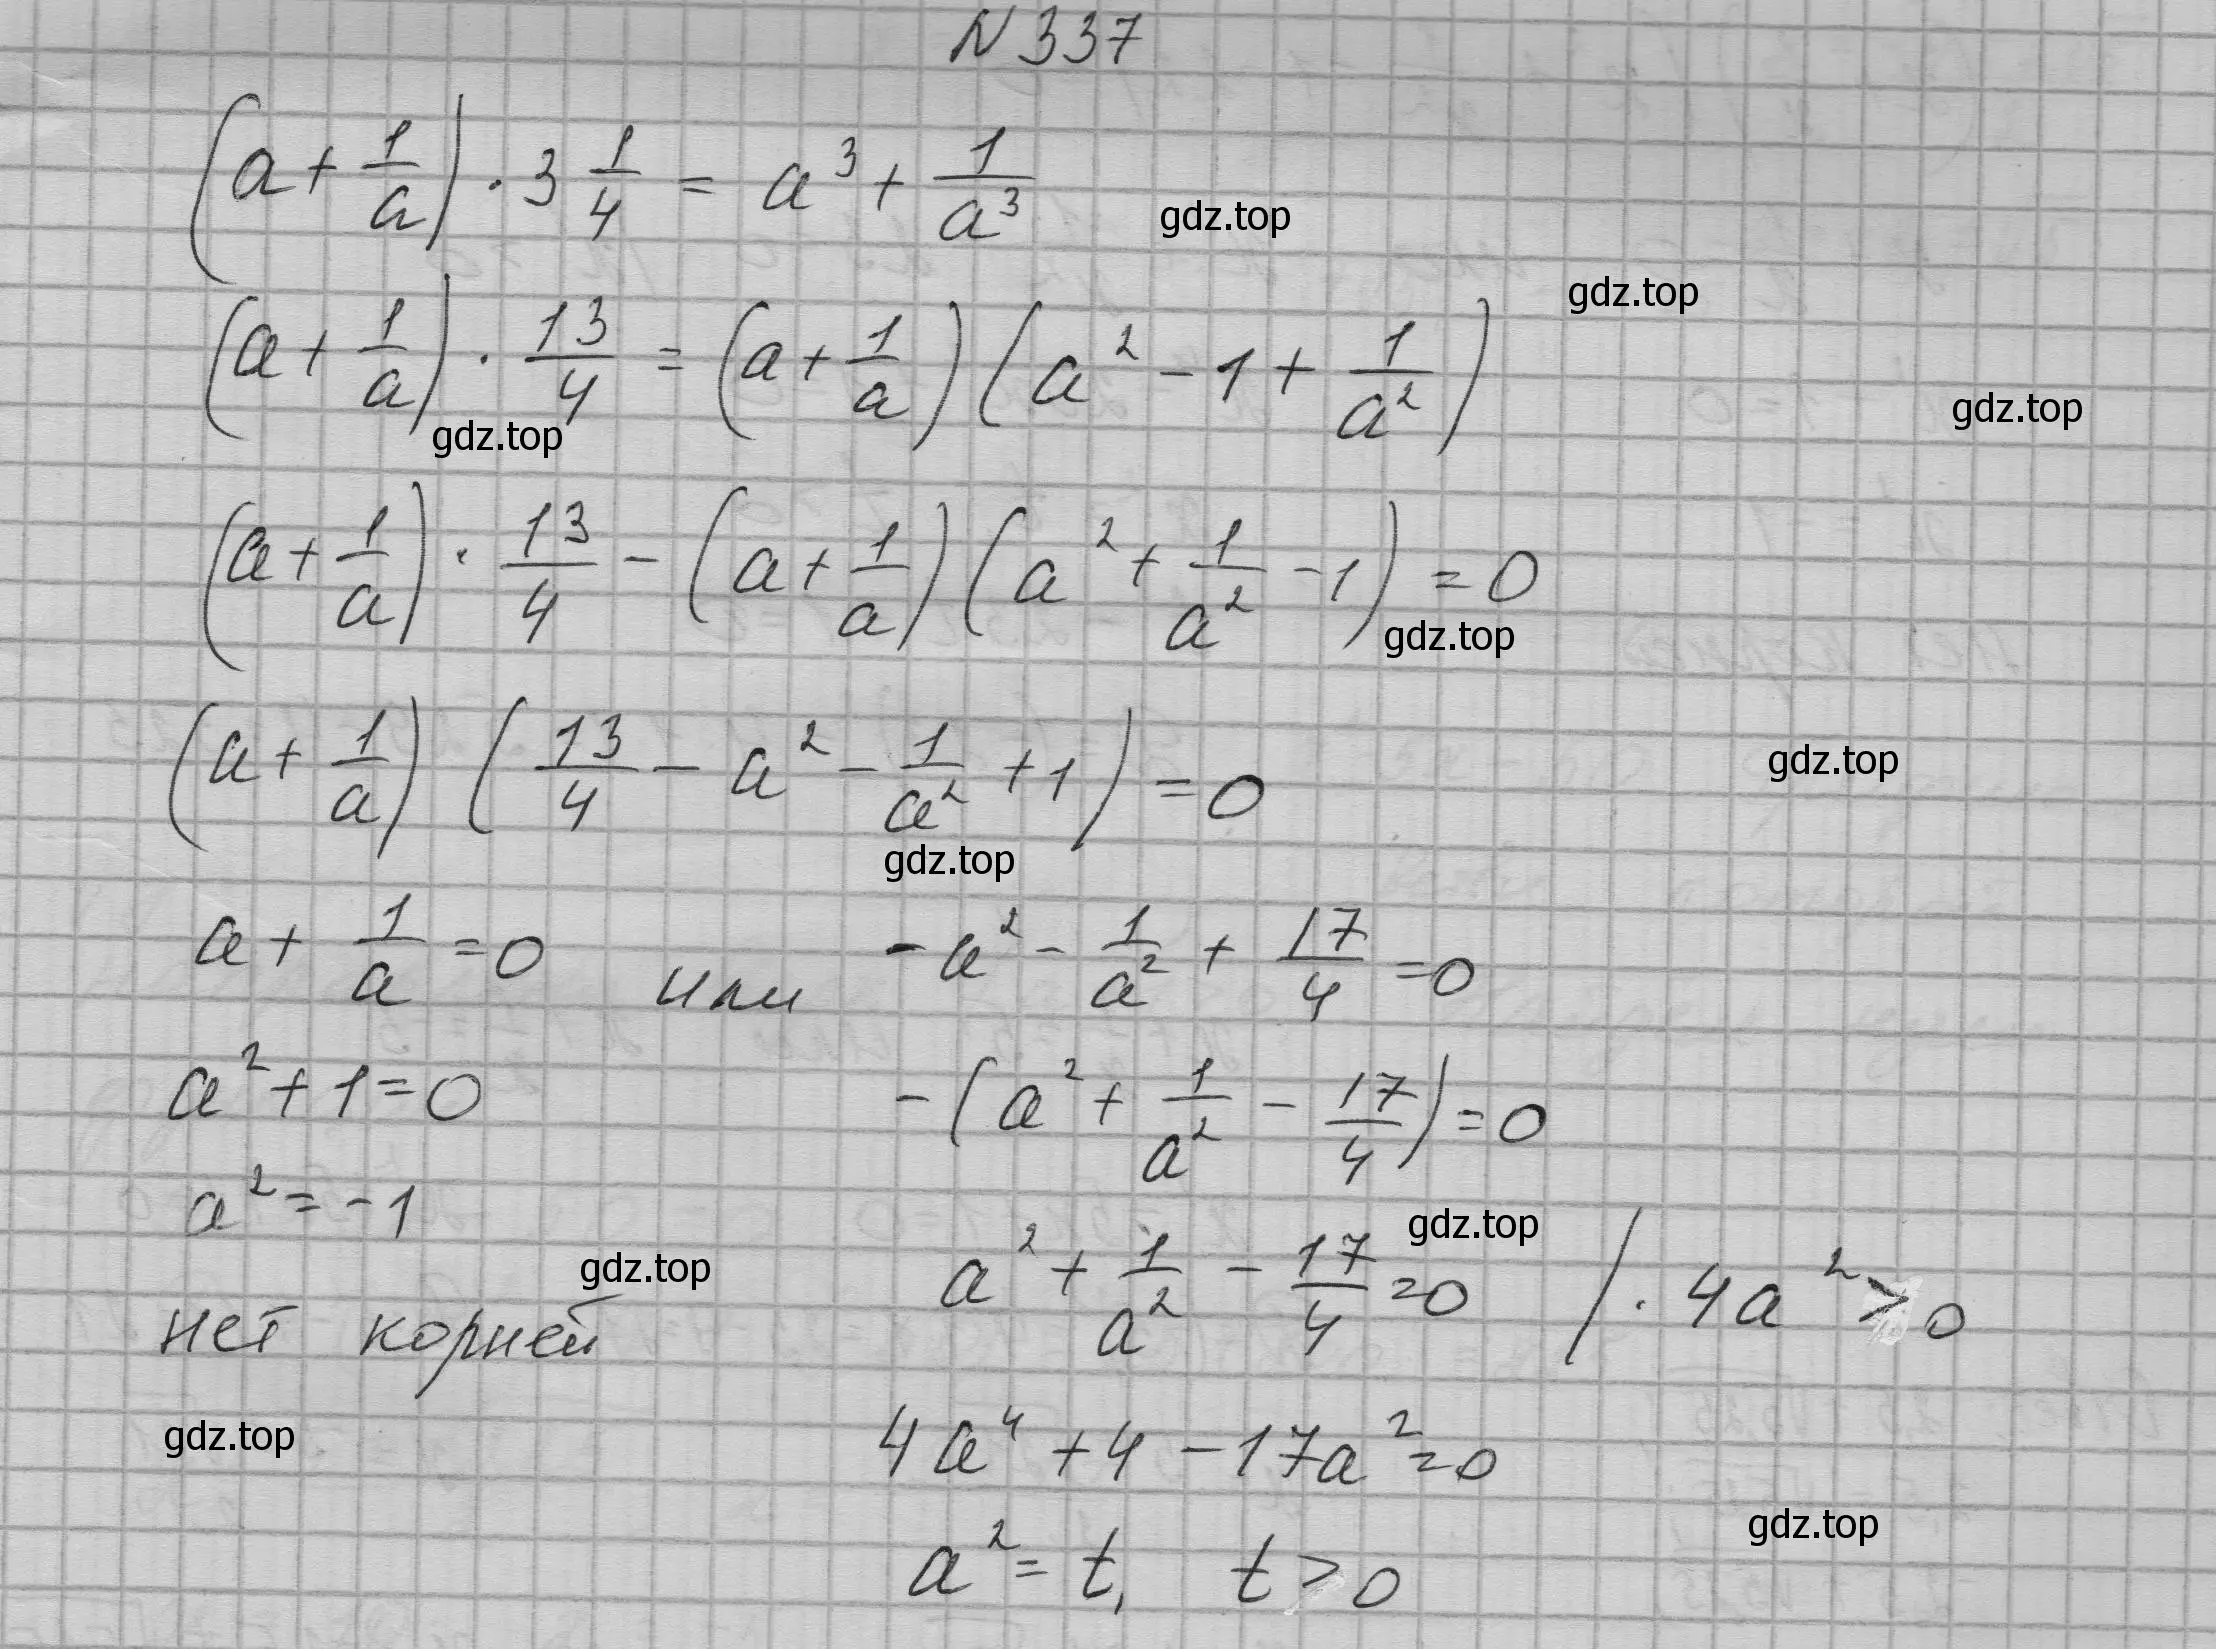 N 337
(a + 1/a) · 3 1/4 = a³ + 1/a³
gdz.top
gdz.top
(a + 1/a) · 13/4 = (a + 1/a)(a² - 1 + 1/a²)
gdz.top
gdz.top
(a + 1/a) · 13/4 - (a + 1/a)(a² + 1/a² - 1) = 0
gdz.top
(a + 1/a)(13/4 - a² - 1/a² + 1) = 0
gdz.top
gdz.top
a + 1/a = 0 или -a² - 1/a² + 17/4 = 0
a² + 1 = 0 -(a² + 1/a² - 17/4) = 0
a² = -1
gdz.top
gdz.top
a² + 1/a² - 17/4 = 0 / · 4a² > 0
нет корней
gdz.top
4a⁴ + 4 - 17a² = 0
gdz.top
a² = t, t > 0